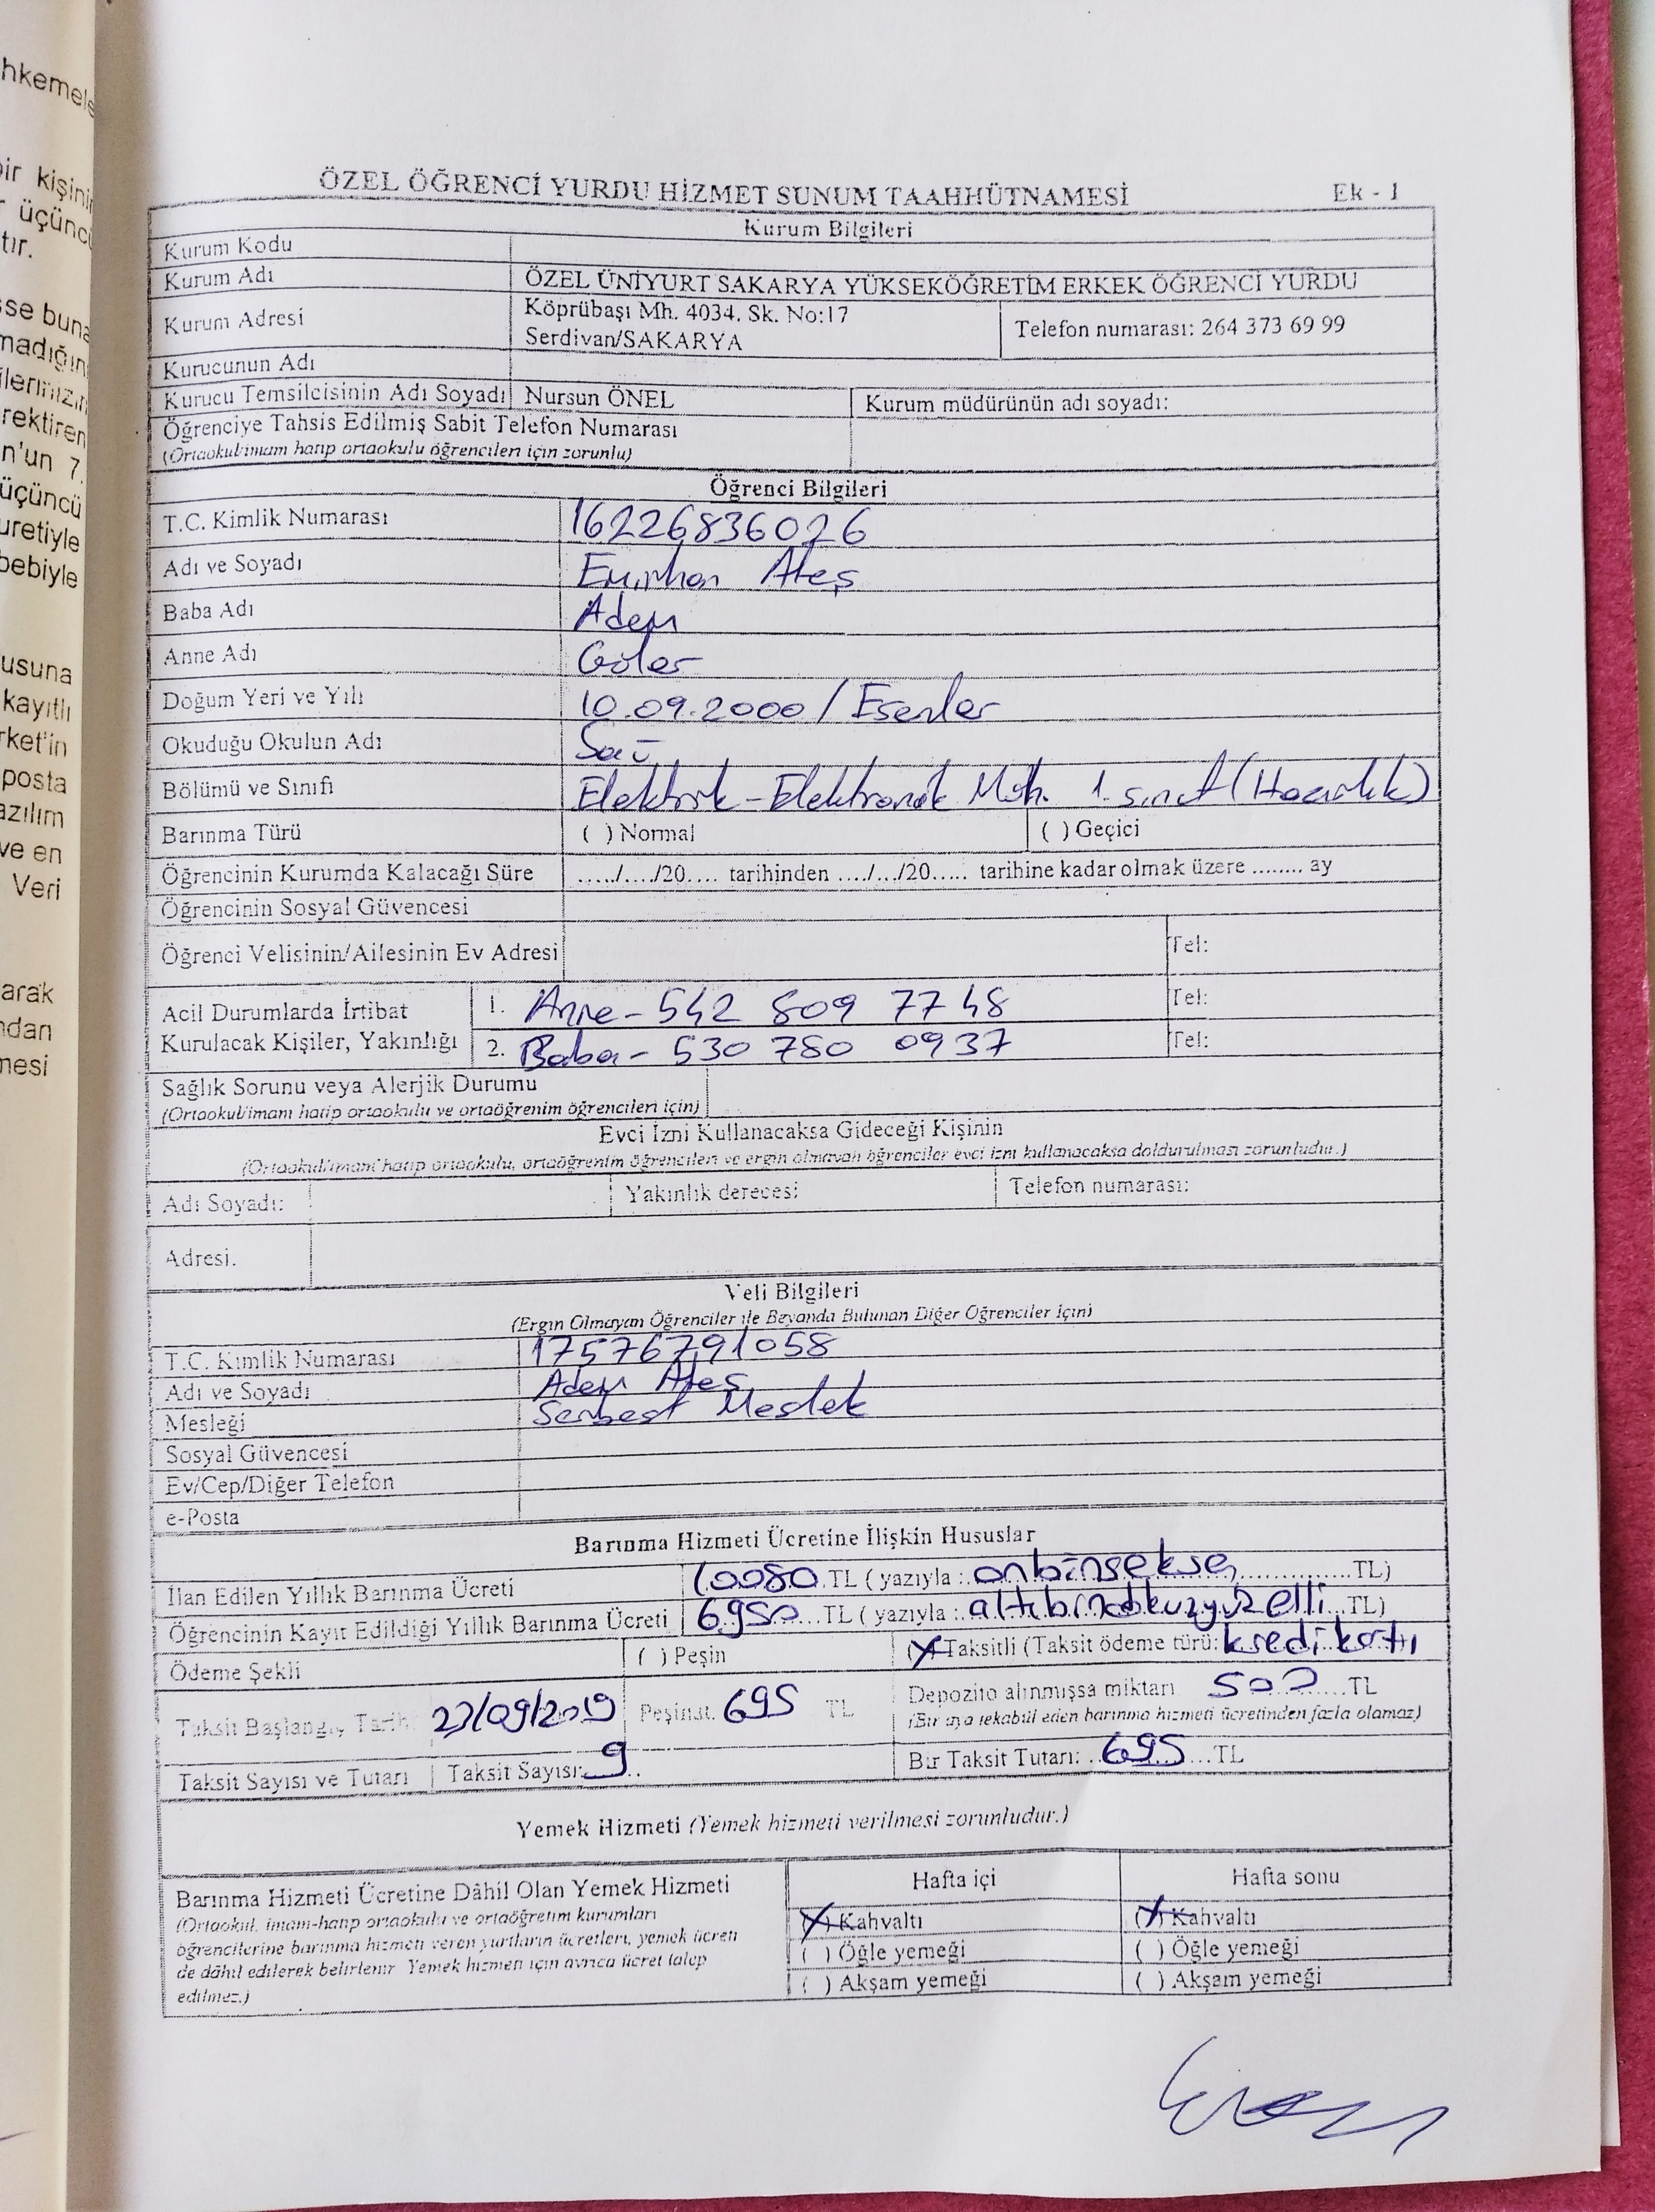 hkemele
bir kişinin
r üçüncü
tır.
sse buna
madığın
ilerimizin
rektiren
n'un 7.
üçüncü
uretiyle
bebiyle
usuna
kayıtlı
rket'in
posta
azılım
ve en
Veri
arak
ndan
mesi
ÖZEL ÖĞRENCİ YURDU HİZMET SUNUM TAAHHÜTNAMESİ Ek - 1
Kurum Bilgileri
Kurum Kodu
Kurum Adı ÖZEL ÜNİYURT SAKARYA YÜKSEKÖĞRETİM ERKEK ÖĞRENCİ YURDU
Kurum Adresi Köprübaşı Mh. 4034. Sk. No:17
Serdivan/SAKARYA Telefon numarası: 264 373 69 99
Kurucunun Adı
Kurucu Temsilcisinin Adı Soyadı Nursun ÖNEL Kurum müdürünün adı soyadı:
Öğrenciye Tahsis Edilmiş Sabit Telefon Numarası
(Ortaokul/imam hatip ortaokulu öğrencileri için zorunlu)
Öğrenci Bilgileri
T.C. Kimlik Numarası 16226836026
Adı ve Soyadı Emirhan Ateş
Baba Adı Adem
Anne Adı Güler
Doğum Yeri ve Yılı 10.09.2000 / Esenler
Okuduğu Okulun Adı Saü
Bölümü ve Sınıfı Elektrik-Elektronik Müh. 1. sınıf (Hazırlık)
Barınma Türü ( ) Normal ( ) Geçici
Öğrencinin Kurumda Kalacağı Süre ...../..../20.... tarihinden ..../.../20..... tarihine kadar olmak üzere ........ ay
Öğrencinin Sosyal Güvencesi
Öğrenci Velisinin/Ailesinin Ev Adresi Tel:
Acil Durumlarda İrtibat
Kurulacak Kişiler, Yakınlığı
1. Anne - 542 809 77 48 Tel:
2. Baba - 530 780 0937 Tel:
Sağlık Sorunu veya Alerjik Durumu
(Ortaokul/imam hatip ortaokulu ve ortaöğrenim öğrencileri için)
Evci İzni Kullanacaksa Gideceği Kişinin
(Ortaokul/imam hatip ortaokulu, ortaöğrenim öğrencileri ve ergin olmayan öğrenciler evci izni kullanacaksa doldurulması zorunludur.)
Adı Soyadı: Yakınlık derecesi: Telefon numarası:
Adresi.
Veli Bilgileri
(Ergin Olmayan Öğrenciler ile Beyanda Bulunan Diğer Öğrenciler İçin)
T.C. Kimlik Numarası 17576791058
Adı ve Soyadı Adem Ateş
Mesleği Serbest Meslek
Sosyal Güvencesi
Ev/Cep/Diğer Telefon
e-Posta
Barınma Hizmeti Ücretine İlişkin Hususlar
İlan Edilen Yıllık Barınma Ücreti 10080 TL ( yazıyla : onbinseksen TL)
Öğrencinin Kayıt Edildiği Yıllık Barınma Ücreti 6950 TL ( yazıyla : altıbindokuzyüzelli TL)
Ödeme Şekli ( ) Peşin (X) Taksitli (Taksit ödeme türü: kredi kartı
Taksit Başlangıç Tarih. 27/09/2019 Peşinat. 695 TL Depozito alınmışsa miktarı 500 TL
(Bir aya tekabül eden barınma hizmeti ücretinden fazla olamaz)
Taksit Sayısı ve Tutarı Taksit Sayısı: 9 Bir Taksit Tutarı: 695 TL
Yemek Hizmeti (Yemek hizmeti verilmesi zorunludur.)
Barınma Hizmeti Ücretine Dâhil Olan Yemek Hizmeti
(Ortaokul, imam-hatip ortaokulu ve ortaöğretim kurumları
öğrencilerine barınma hizmeti veren yurtların ücretleri, yemek ücreti
de dâhil edilerek belirlenir. Yemek hizmeti için ayrıca ücret talep
edilmez.)
Hafta içi Hafta sonu
(X) Kahvaltı (X) Kahvaltı
( ) Öğle yemeği ( ) Öğle yemeği
( ) Akşam yemeği ( ) Akşam yemeği